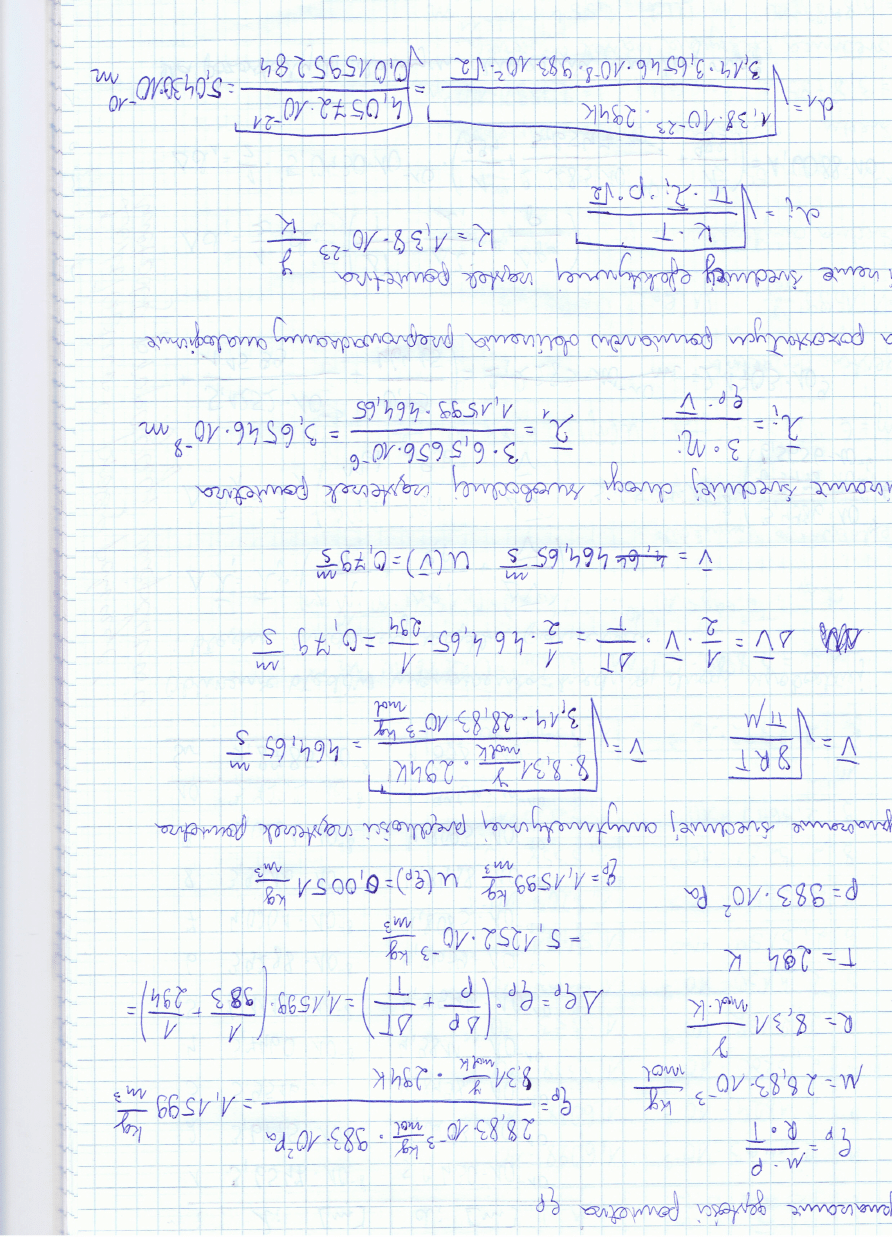 gęstości powietrza ρp
ρp = M · p / R · T    ρp = 28,83·10⁻³ kg/mol · 983·10² Pa / 8,31 J/mol K · 294 K = 1,1599 kg/m³
M = 28,83·10⁻³ kg/mol
R = 8,31 J/mol·K    Δρp = ρp · (Δp/p + ΔT/T) = 1,1599 · (1/983 + 1/294) =
T = 294 K    = 5,1252·10⁻³ kg/m³
p = 983·10² Pa    ρp = 1,1599 kg/m³    u(ρp) = 0,0051 kg/m³
średniej arytmetycznej prędkości cząsteczek powietrza
V̅ = √(8RT / πM)    V̅ = √(8·8,31 J/mol K · 294 K / 3,14 · 28,83·10⁻³ kg/mol) = 464,65 m/s
ΔV̅ = 1/2 · V̅ · ΔT/T = 1/2 · 464,65 · 1/294 = 0,79 m/s
V̅ = 464,65 m/s    u(V̅) = 0,79 m/s
średniej drogi swobodnej cząsteczek powietrza
λ̅i = 3·ηi / ρp·V̅    λ̅1 = 3·6,5656·10⁻⁶ / 1,1599·464,65 = 3,6546·10⁻⁸ m
pozostałych pomiarów obliczenia przeprowadzamy analogicznie
średnicy efektywnej cząstek powietrza
di = √(k·T / π·λ̅i·p·√2)    K = 1,38·10⁻²³ J/K
d1 = √(1,38·10⁻²³ · 294K / 3,14·3,6546·10⁻⁸·983·10²·√2) = √(4,0572·10⁻²¹ / 0,01595284) = 5,0430·10⁻¹⁰ m